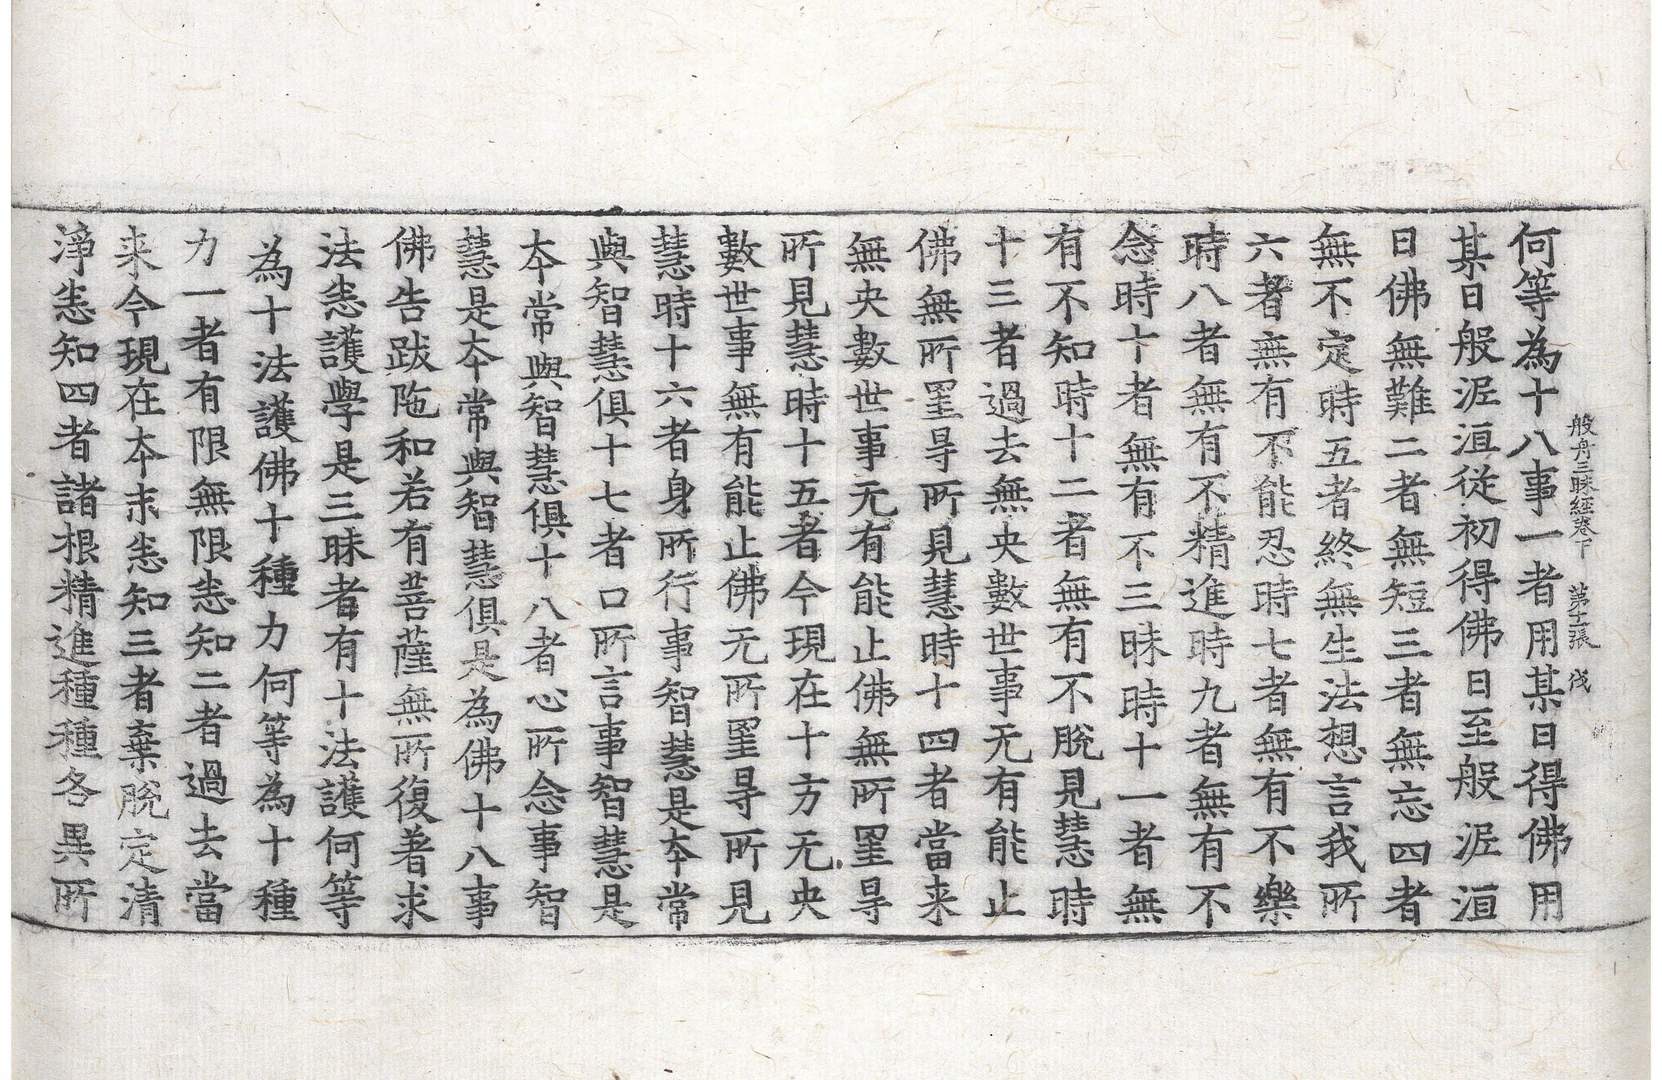 般舟三昧経卷下　第十二張　伐
何等為十八事一者用某日得佛用
某日般泥洹從初得佛日至般泥洹
日佛無難二者無短三者無忘四者
無不定時五者終無生法想言我所
六者無有不能忍時七者無有不樂
時八者無有不精進時九者無有不
念時十者無有不三昧時十一者無
有不知時十二者無有不脫見慧時
十三者過去無央數世事无有能止
佛無所罣㝵所見慧時十四者當来
無央數世事无有能止佛無所罣㝵
所見慧時十五者今現在十方无央
數世事無有能止佛无所罣㝵所見
慧時十六者身所行事智慧是夲常
與智慧俱十七者口所言事智慧是
夲常與智慧俱十八者心所念事智
慧是夲常與智慧俱是為佛十八事
佛告跋陁和若有菩薩無所復著求
法悉護學是三昧者有十法護何等
為十法護佛十種力何等為十種
力一者有限無限悉知二者過去當
来今現在夲末悉知三者棄脫定清
淨悉知四者諸根精進種種各異所